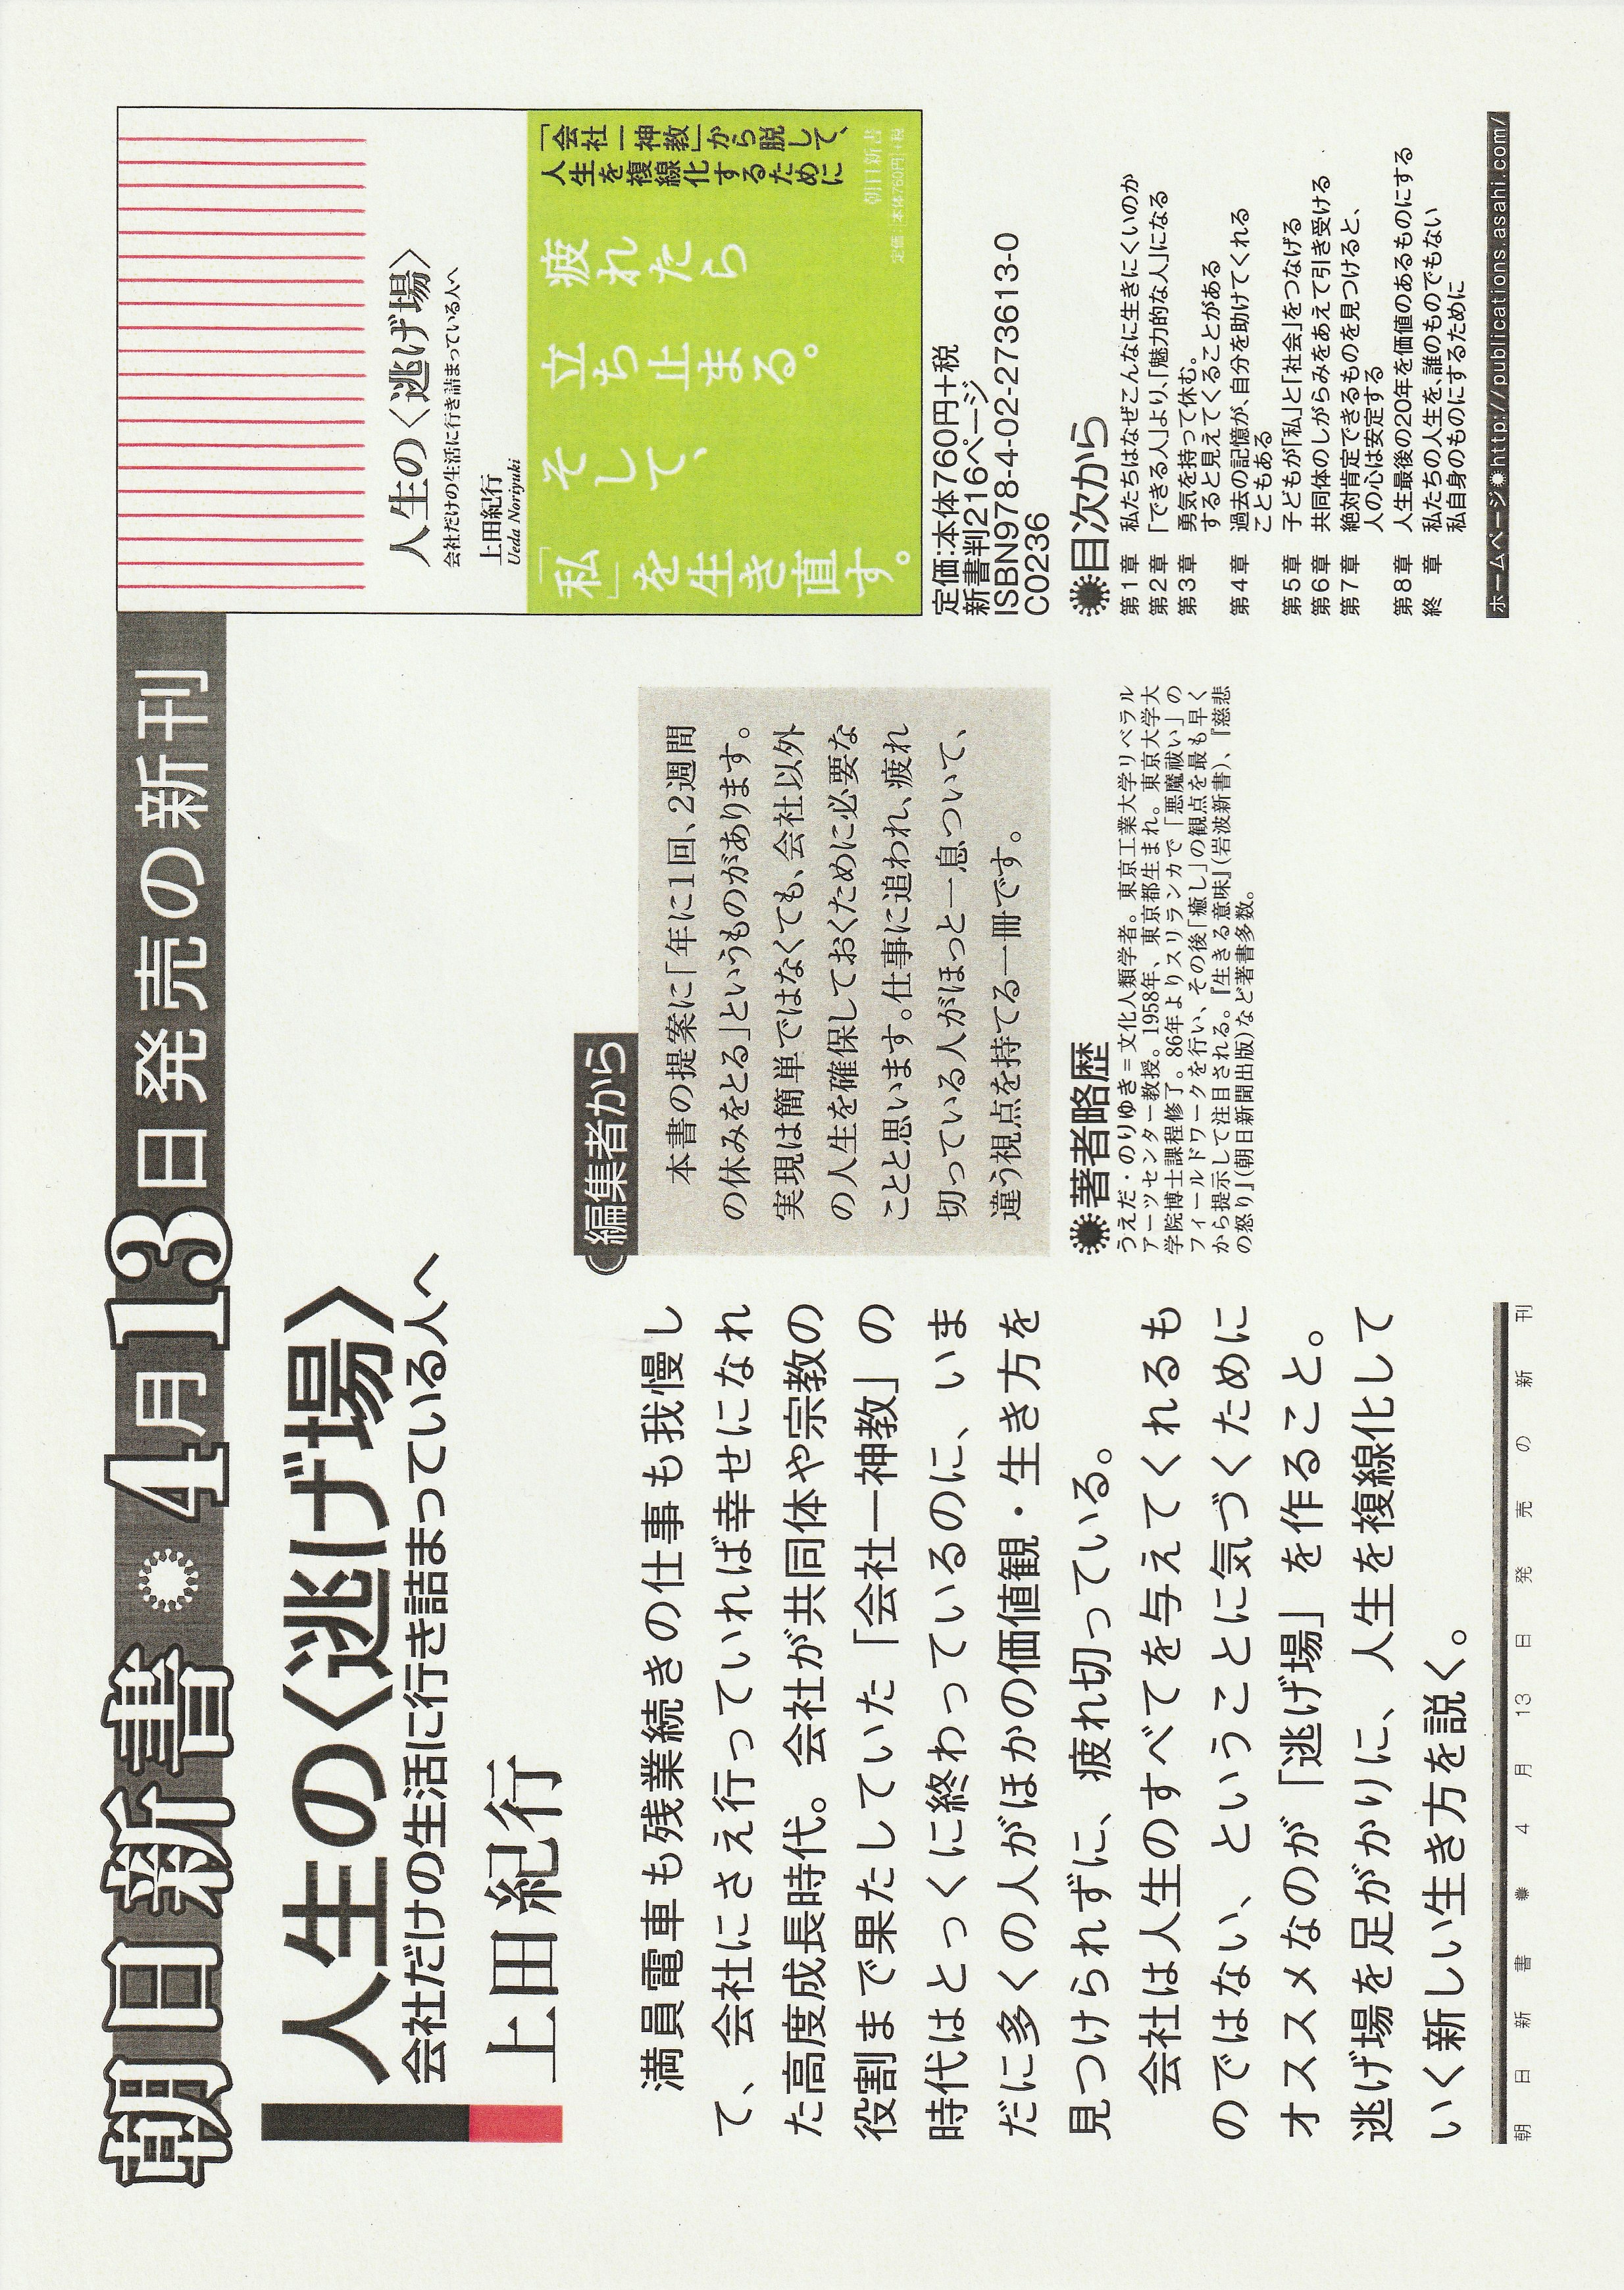 朝日新書 4月13日発売の新刊
人生の〈逃げ場〉
会社だけの生活に行き詰まっている人へ
上田紀行
満員電車も残業続きの仕事も我慢し
て、会社にさえ行っていれば幸せになれ
た高度成長時代。会社が共同体や宗教の
役割まで果たしていた「会社一神教」の
時代はとっくに終わっているのに、いま
だに多くの人がほかの価値観・生き方を
見つけられずに、疲れ切っている。
会社は人生のすべてを与えてくれるも
のではない、ということに気づくために
オススメなのが「逃げ場」を作ること。
逃げ場を足がかりに、人生を複線化して
いく新しい生き方を説く。
編集者から
本書の提案に「年に1回、2週間
の休みをとる」というものがあります。
実現は簡単ではなくても、会社以外
の人生を確保しておくために必要な
ことと思います。仕事に追われ、疲れ
切っている人がほっと一息ついて、
違う視点を持てる一冊です。
著者略歴
うえだ・のりゆき＝文化人類学者。東京工業大学リベラル
アーツセンター教授。1958年、東京都生まれ。東京大学大
学院博士課程修了。86年よりスリランカで「悪魔祓い」の
フィールドワークを行い、その後「癒し」の観点を最も早く
から提示して注目される。『生きる意味』（岩波新書）、『慈悲
の怒り』（朝日新聞出版）など著書多数。
人生の〈逃げ場〉
会社だけの生活に行き詰まっている人へ
上田紀行
Ueda Noriyuki
「会社一神教」から脱して、
人生を複線化するために
疲れたら
立ち止まる。
そして、
「私」を生き直す。
朝日新書
定価 本体760円+税
定価:本体760円+税
新書判216ページ
ISBN978-4-02-273613-0
C0236
目次から
第1章 私たちはなぜこんなに生きにくいのか
第2章 「できる人」より、「魅力的な人」になる
第3章 勇気を持って休む。
すると見えてくることがある
第4章 過去の記憶が、自分を助けてくれる
こともある
第5章 子どもが「私」と「社会」をつなげる
第6章 共同体のしがらみをあえて引き受ける
第7章 絶対肯定できるものを見つけると、
人の心は安定する
第8章 人生最後の20年を価値のあるものにする
終 章 私たちの人生を、誰のものでもない
私自身のものにするために
ホームページ http://publications.asahi.com/
朝日新書 4月13日発売の新刊